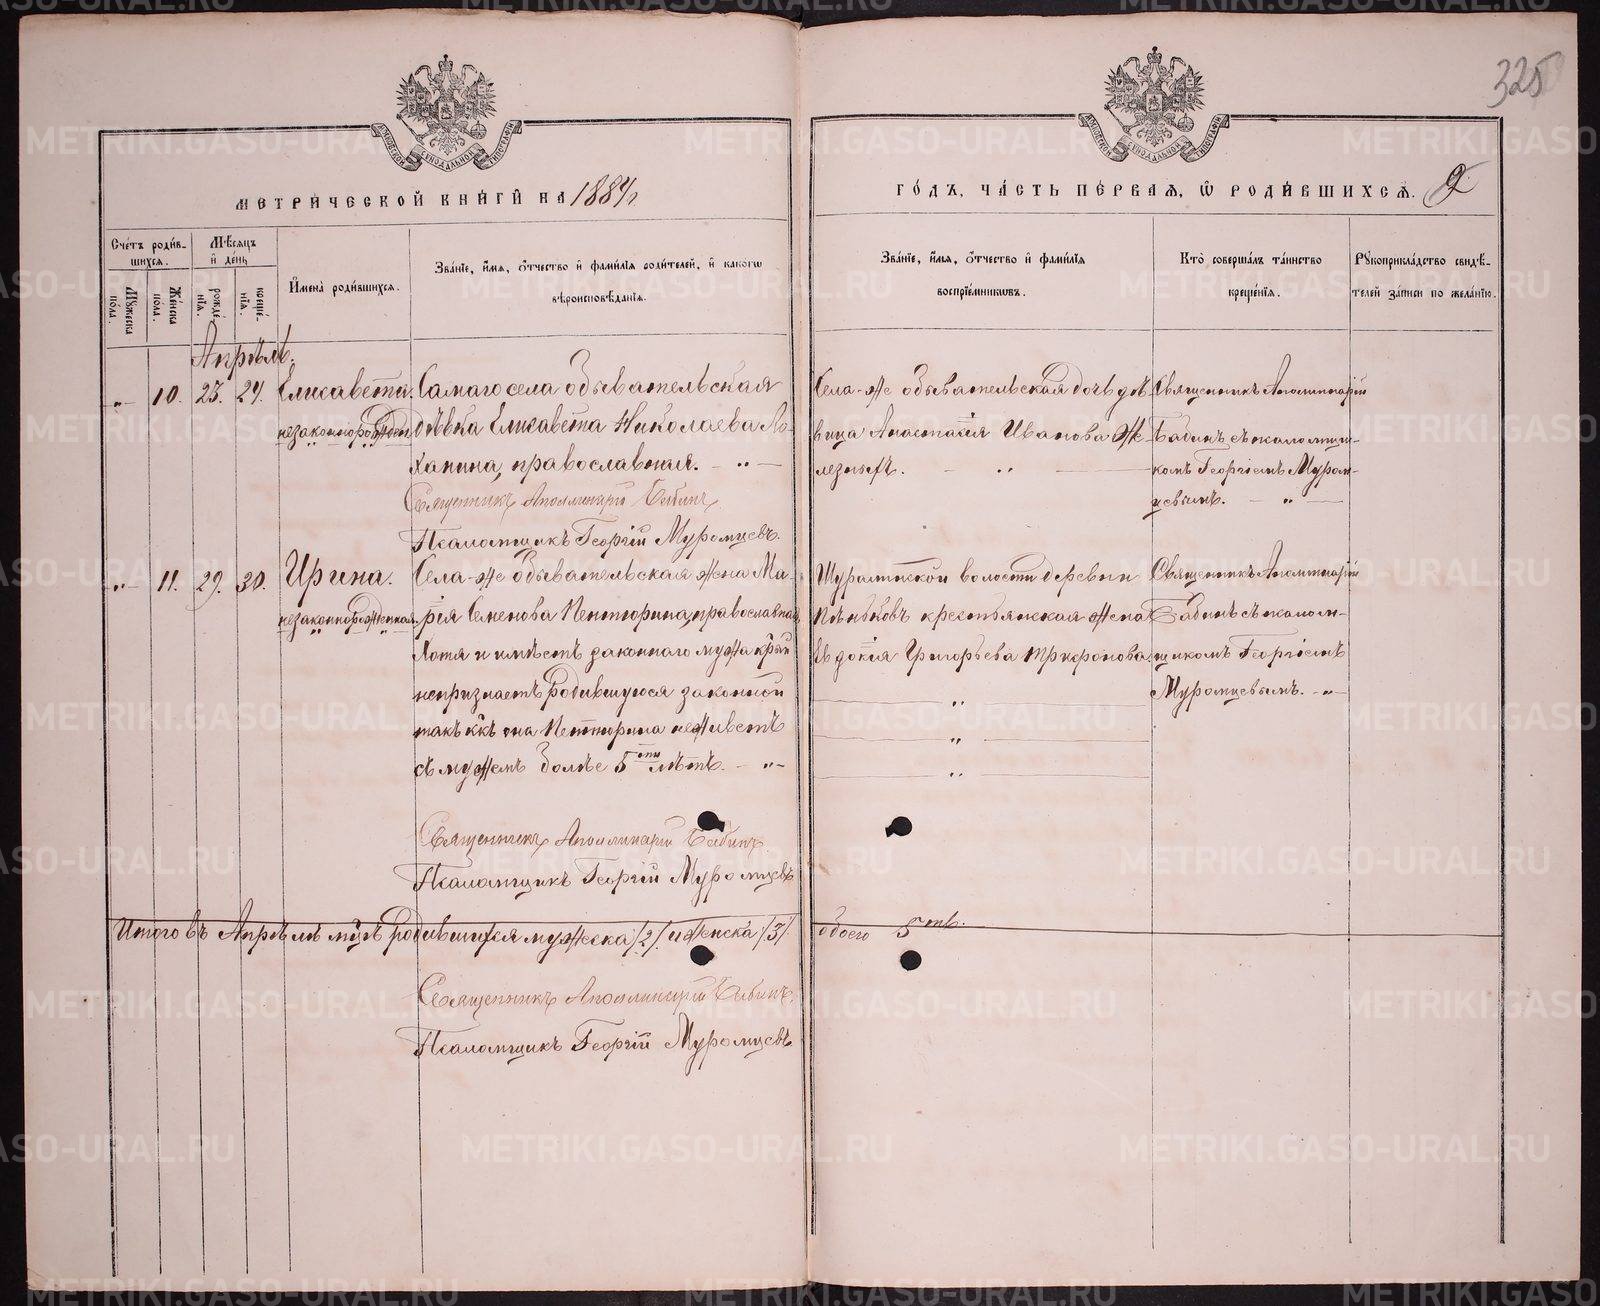 325
МЕТРИ́ЧЕСКОЙ КНИ́ГИ НА 1884
ГО́ДЪ, ЧА́СТЬ ПЕ́РВАЯ, Ѽ РОДИ́ВШИХСЯ. 9
Сче́тъ роди́в-
шихся.
Мѣ́сяцъ
и҆ де́нь
Мꙋ́жеска
по́ла.
Же́нска
по́ла.
рожде́-
нїя.
креще́-
нїя.
И҆мена̀ роди́вшихся.
Зва́нїе, и҆́мя, ѻ҆́тчество и҆ фами́лїя роди́телей, и҆ какогѡ
вѣроисповѣ́данїя.
Зва́нїе, и҆́мя, ѻ҆́тчество и҆ фами́лїя
воспрїе́мниковъ.
Кто̀ соверша́лъ та́инство
креще́нїя.
Рꙋкоприкла́дство свидѣ́-
телей за́писи по жела́нїю.
Апрѣль.
„ 10. 23. 24.
Елисавета.
незаконнорожден
Самаго села обывательская
дѣвка Елисавета Николаева Ло-
ханина, православная. – „ –
Священникъ Аполлинарій Бабинъ
Псаломщикъ Георгій Муромцевъ.
Села-же обывательская дочь дѣ-
вица Анастасія Иванова Же-
лезныхъ. – „ –
Священникъ Аполлинарій
Бабинъ съ псаломщи-
комъ Георгіемъ Муром-
цевымъ. – „ –
„ 11. 29. 30.
Ирина.
незаконнорожденная.
Села-же обывательская жена Ма-
рія Семенова Пентюрина, православная,
Хотя и имѣетъ законнаго мужа крый
непризнаетъ родившуюся законной
такъ къ она Пентюрина неживетъ
съ мужемъ болѣе 5ти лѣтъ. – „ –
Священникъ Аполлинарій Бабинъ
Псаломщикъ Георгій Муромцевъ
волости деревни
крестьянская жена
Евдокія Григорьева Трифонова.
„
„
„
Священникъ Аполлинарій
Бабинъ съ псалом-
щикомъ Георгіемъ
Муромцевымъ. – „ –
Итого въ Апрѣлѣ мцѣ родившихся мужеска /2/ и женска /3/
обоего 5ть.
Священникъ Аполлинарій Бабинъ.
Псаломщикъ Георгій Муромцевъ
METRIKI.GASO-URAL.RU